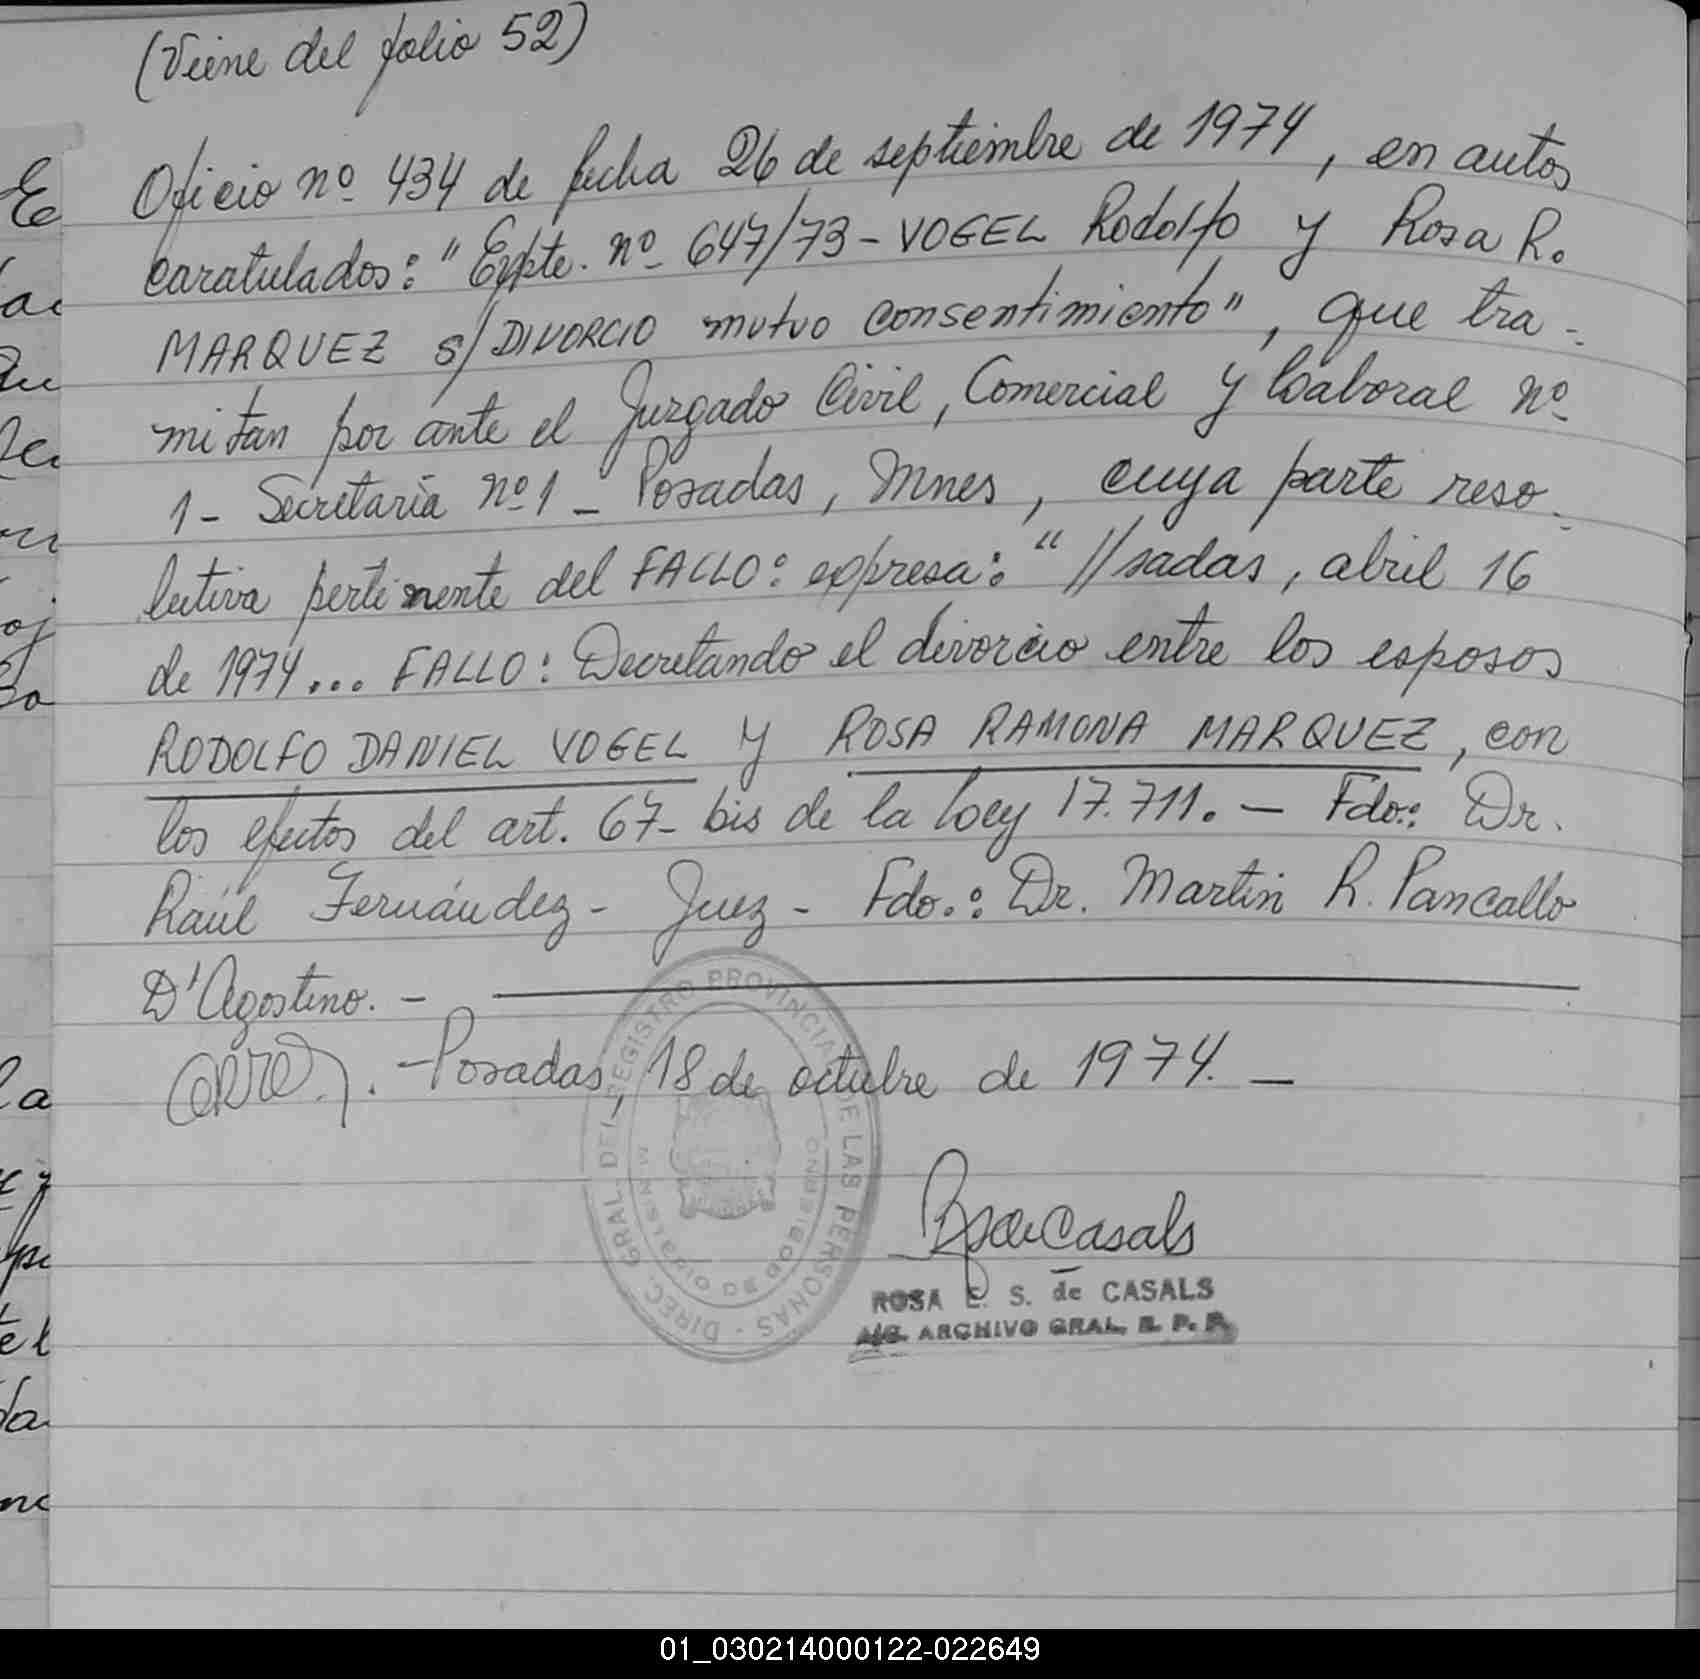 (Viene del folio 52)
Oficio nº 434 de fecha 26 de septiembre de 1974, en autos
caratulados: "Expte. nº 647/73 - VOGEL Rodolfo y Rosa R.
MARQUEZ s/ DIVORCIO mutuo consentimiento", que tra-
mitan por ante el Juzgado Civil, Comercial y Laboral nº
1 - Secretaría nº 1 - Posadas, Mnes, cuya parte reso-
lutiva pertinente del FALLO: expresa: "//sadas, abril 16
de 1974... FALLO: Decretando el divorcio entre los esposos
RODOLFO DANIEL VOGEL y ROSA RAMONA MARQUEZ, con
los efectos del art. 67- bis de la Ley 17.711. - Fdo.: Dr.
Raúl Fernández - Juez - Fdo.: Dr. Martin R. Pancallo
D'Agostino. -
- Posadas, 18 de octubre de 1974. -
DIREC. GRAL. DEL REGISTRO PROVINCIAL DE LAS PERSONAS -
MINISTERIO DE GOBIERNO
de Casals
ROSA E. S. de CASALS
A/C. ARCHIVO GRAL. R. P. P.
01_030214000122-022649